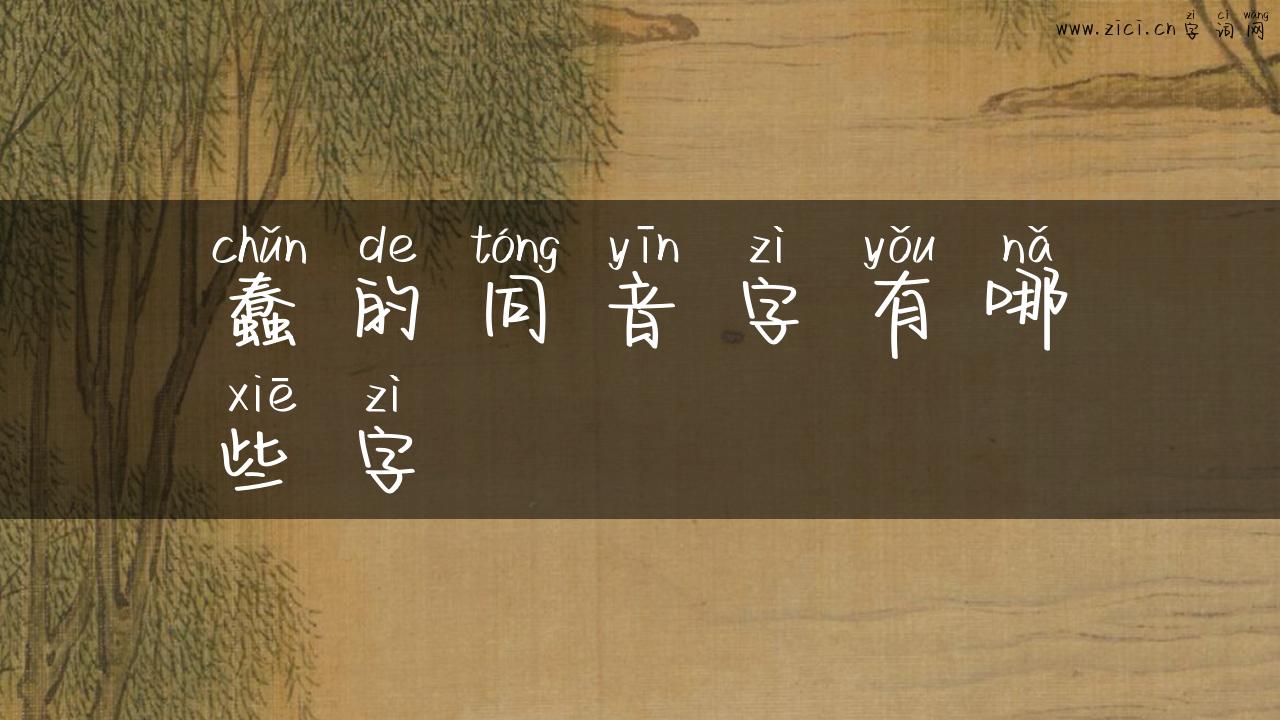 zì cí wǎng
www.zici.cn 字词网
chǔn de tóng yīn zì yǒu nǎ
蠢的同音字有哪
xiē zì
些字